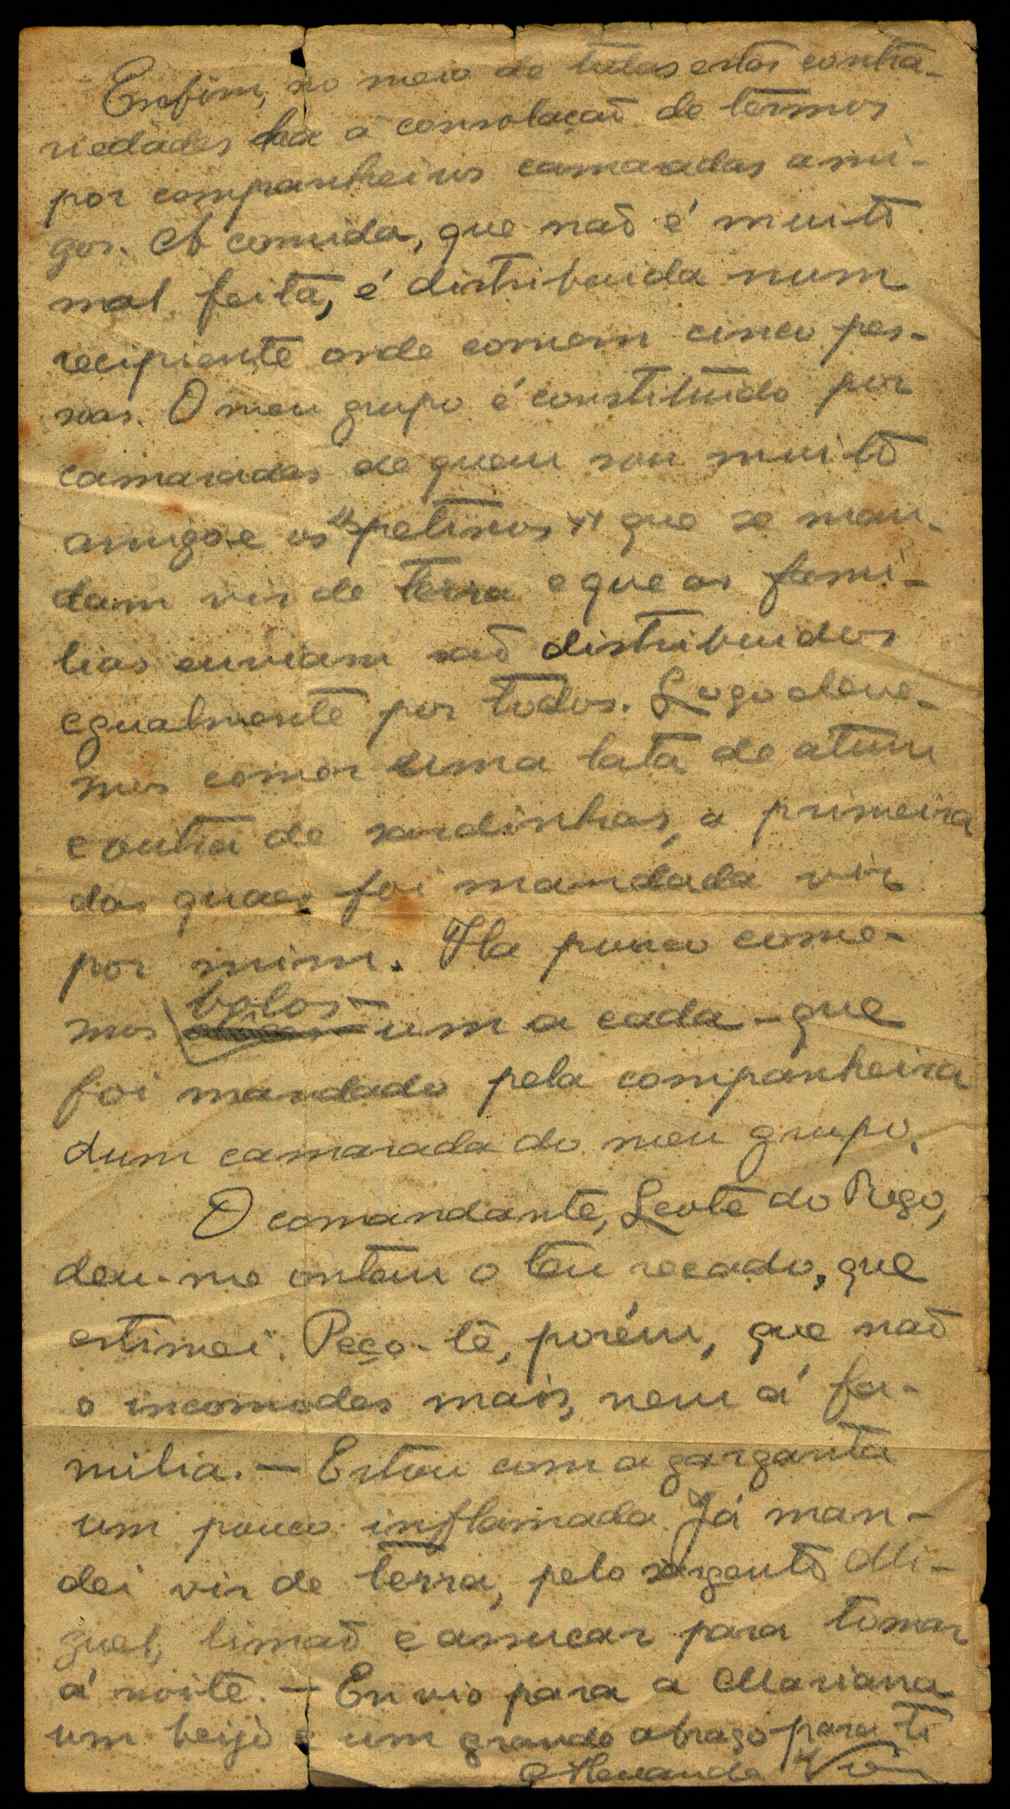 Enfim, no meio de todas estas contra-
riedades ha a consolação de termos
por companheiros camaradas ami-
gos. A comida, que não é muito
mal feita, é distribuida num
recipiente onde comem cinco pes-
soas. O meu grupo é constituido por
camaradas de quem sou muito
amigo e os "petiscos" que se man-
dam vir de terra e que as fami-
lias enviam são distribuidos
egualmente por todos. Logo deve-
mos comer uma lata de atum
e outra de sardinhas, a primeira
das quaes foi mandada vir
por mim. Ha pouco come-
mos bolos - um a cada - que
foi mandado pela companheira
dum camarada do meu grupo.
O comandante, Leote do Rego,
deu-me ontem o teu recado, que
estimei. Peço-te, porém, que não
o incomodes mais, nem á fa-
milia. - Estou com a garganta
um pouco inflamada. Já man-
dei vir de terra, pelo sargento Mi-
guel, limão e assucar para tomar
á noite. - Envio para a Mariana
um beijo e um grande abraço para ti
Alexandre